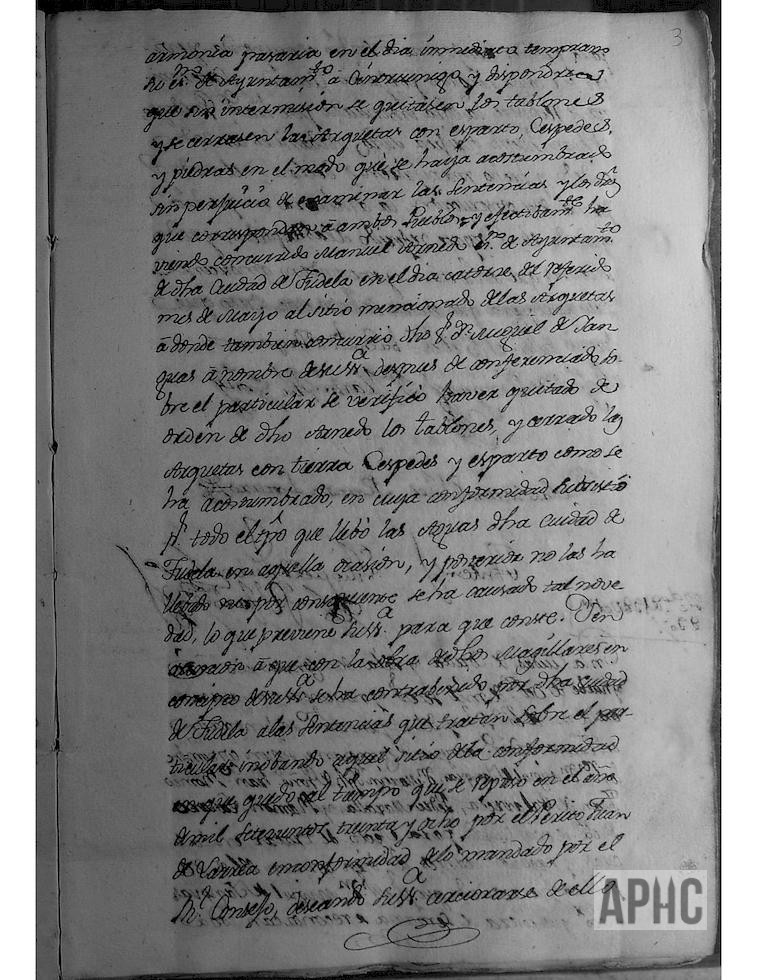 3
armonía pasaria en el dia inmediato tempran
su ss.no de Ayuntam.to a Cintruenigo y dispondria
que sin intermisión se quitasen los tablones
y se cerrasen las Arquetas con esparto, Cespedes,
y piedras en el modo que se haya acostumbrado
sin perjuicio de examinar las sentencias y los dros
que correspondan à ambos Pueblos y efectibam.te ha
viendo concurrido Manuel Arnedo ss.no de Ayuntam.to
de dha Ciudad de Tudela en el dia catorce del referido
mes de Mayo al sitio mencionado de las Arquetas
à donde tambien concurrio dho s.r d.n Miguel de San
guas à nombre de su ss.a despues de conferenciado so
bre el particular se verificó haver quitado de
orden de dho Arnedo los tablones, y cerrado las
Arquetas con tierra Cespedes y esparto como se
ha acostumbrado, en cuya conformidad subsistió
p.r todo el tpo que llebó las Aguas dha Ciudad de
Tudela en aquella ocasión, y posterior no las ha
llebado ni por consiguiente se ha causado tal nove
dad, lo que previene su ss.a para que conste. Y en
atencion à que con la obra de dhos Magillares en
concepto de su ss.a se ha contrabenido por dha ciudad
de Tudela a las sentencias que tratan sobre el par-
ticular inobando aquel sitio de la conformidad
en que quedó al tiempo que se repuso en el año
de mil setecientos treinta y ocho por el Perito Juan
de Larrea en conformidad de lo mandado por el
R.l Consejo, deseando su ss.a cerciorarse de ello
APHC